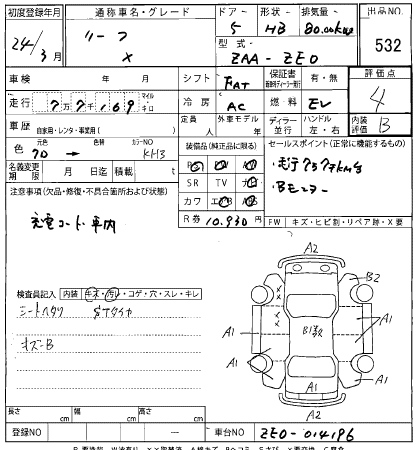 初度登録年月 通称車名・グレード ドアー 形状 排気量 出品NO
24/3月 リーフ X 5 HB 80.00kw 532
型式 ZAA-ZE0
車検 年 月 シフト FAT 保証書 有・無 評価点
走行 77,169 マイル・キロ 冷房 AC 燃料 EV 4
車歴 自家用・レンタ・事業用( ) 外車モデル 年 ディーラー・並行 ハンドル 左・右 内装評価 B
色 元色 70 → 色替 カラーNO KH3 装備品(純正品に限る) セールスポイント(正常に機能するもの)
名義変更期限 月 日迄 積載 SR TV
・走行7万7千km台
・Bモニター
注意事項(欠品・修復・不具合箇所および状態) カワ
R券 10,930円 FW キズ・ヒビ割・リペア跡・X要
充電コード・車内
検査員記入 内装 キズ・汚れ・コゲ・穴・スレ・キレ
シートヘタリ
キズ-B
A2
B2
A1 B1 A1
A1 A1
A1
A2
長さ cm 幅 cm 高さ cm
登録NO ― 車台NO ZE0-014196